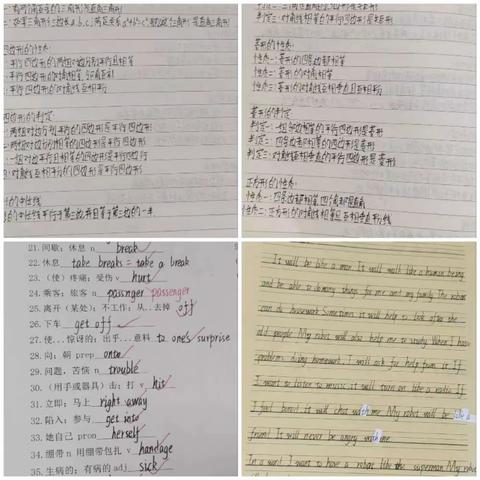 一:有两个角互余的三角形是直角三角形
二:如果三角形的三边长a,b,c满足关系a²+b²=c²那么这个三角形是直角三角形
四边形的性质:
平行四边形的两组对边分别平行且相等
平行四边形的对角相等,邻角互补
平行四边形的对角线互相平分
四边形的判定
两组对边分别平行的四边形是平行四边形
两组对边分别相等的四边形是平行四边形
一组对边平行且相等的四边形是平行四边形
对角线互相平分的四边形是平行四边形
的中位线
的中位线平行于第三边,并且等于第三边的一半.
判定二:对角线相等的平行四边形是矩形
菱形的性质:
性质一:菱形的四条边都相等
性质二:菱形的对角相等
性质三:菱形的对角线互相垂直且互相平分
菱形的判定
判定一:一组邻边相等的平行四边形是菱形
判定二:四条边都相等的四边形是菱形
判定三:对角线互相垂直的平行四边形是菱形
正方形的性质:
性质一:四条边都相等,四个角都是直角
性质二:正方形的对角线相等且互相垂直平分
21. 间歇;休息 n break
22. 休息 take breaks = take a break
23. (使)疼痛;受伤 v hurt
24. 乘客;旅客 n passnger passenger
25. 离开(某处);不工作;从..去掉 off
26. 下车 get off
27. 使…惊讶的;出乎…意料 to one's surprise
28. 向;朝 prep onto
29. 问题;苦恼 n trouble
30. (用手或器具)击;打 v hit
31. 立即;马上 right away
32. 陷入;参与 get into
33. 她自己 pron herself
34. 绷带 n 用绷带包扎 v bandage
35. 生病的;有病的 adj sick
It will be like a man. It will walk like a human being
and be able to do many things for me and my family. The robot
can do housework. Sometimes it will help to look after the
old people. My robot will also help me to study. When I have
problems doing homework, I will ask for help from it. If
I want to listen to music, it will turn on like a radio. If
I feel bored, it will chat with me. My robot will be like a
friend. It will never be angry with me.
In a word, I want to have a robot like the superman. My robot